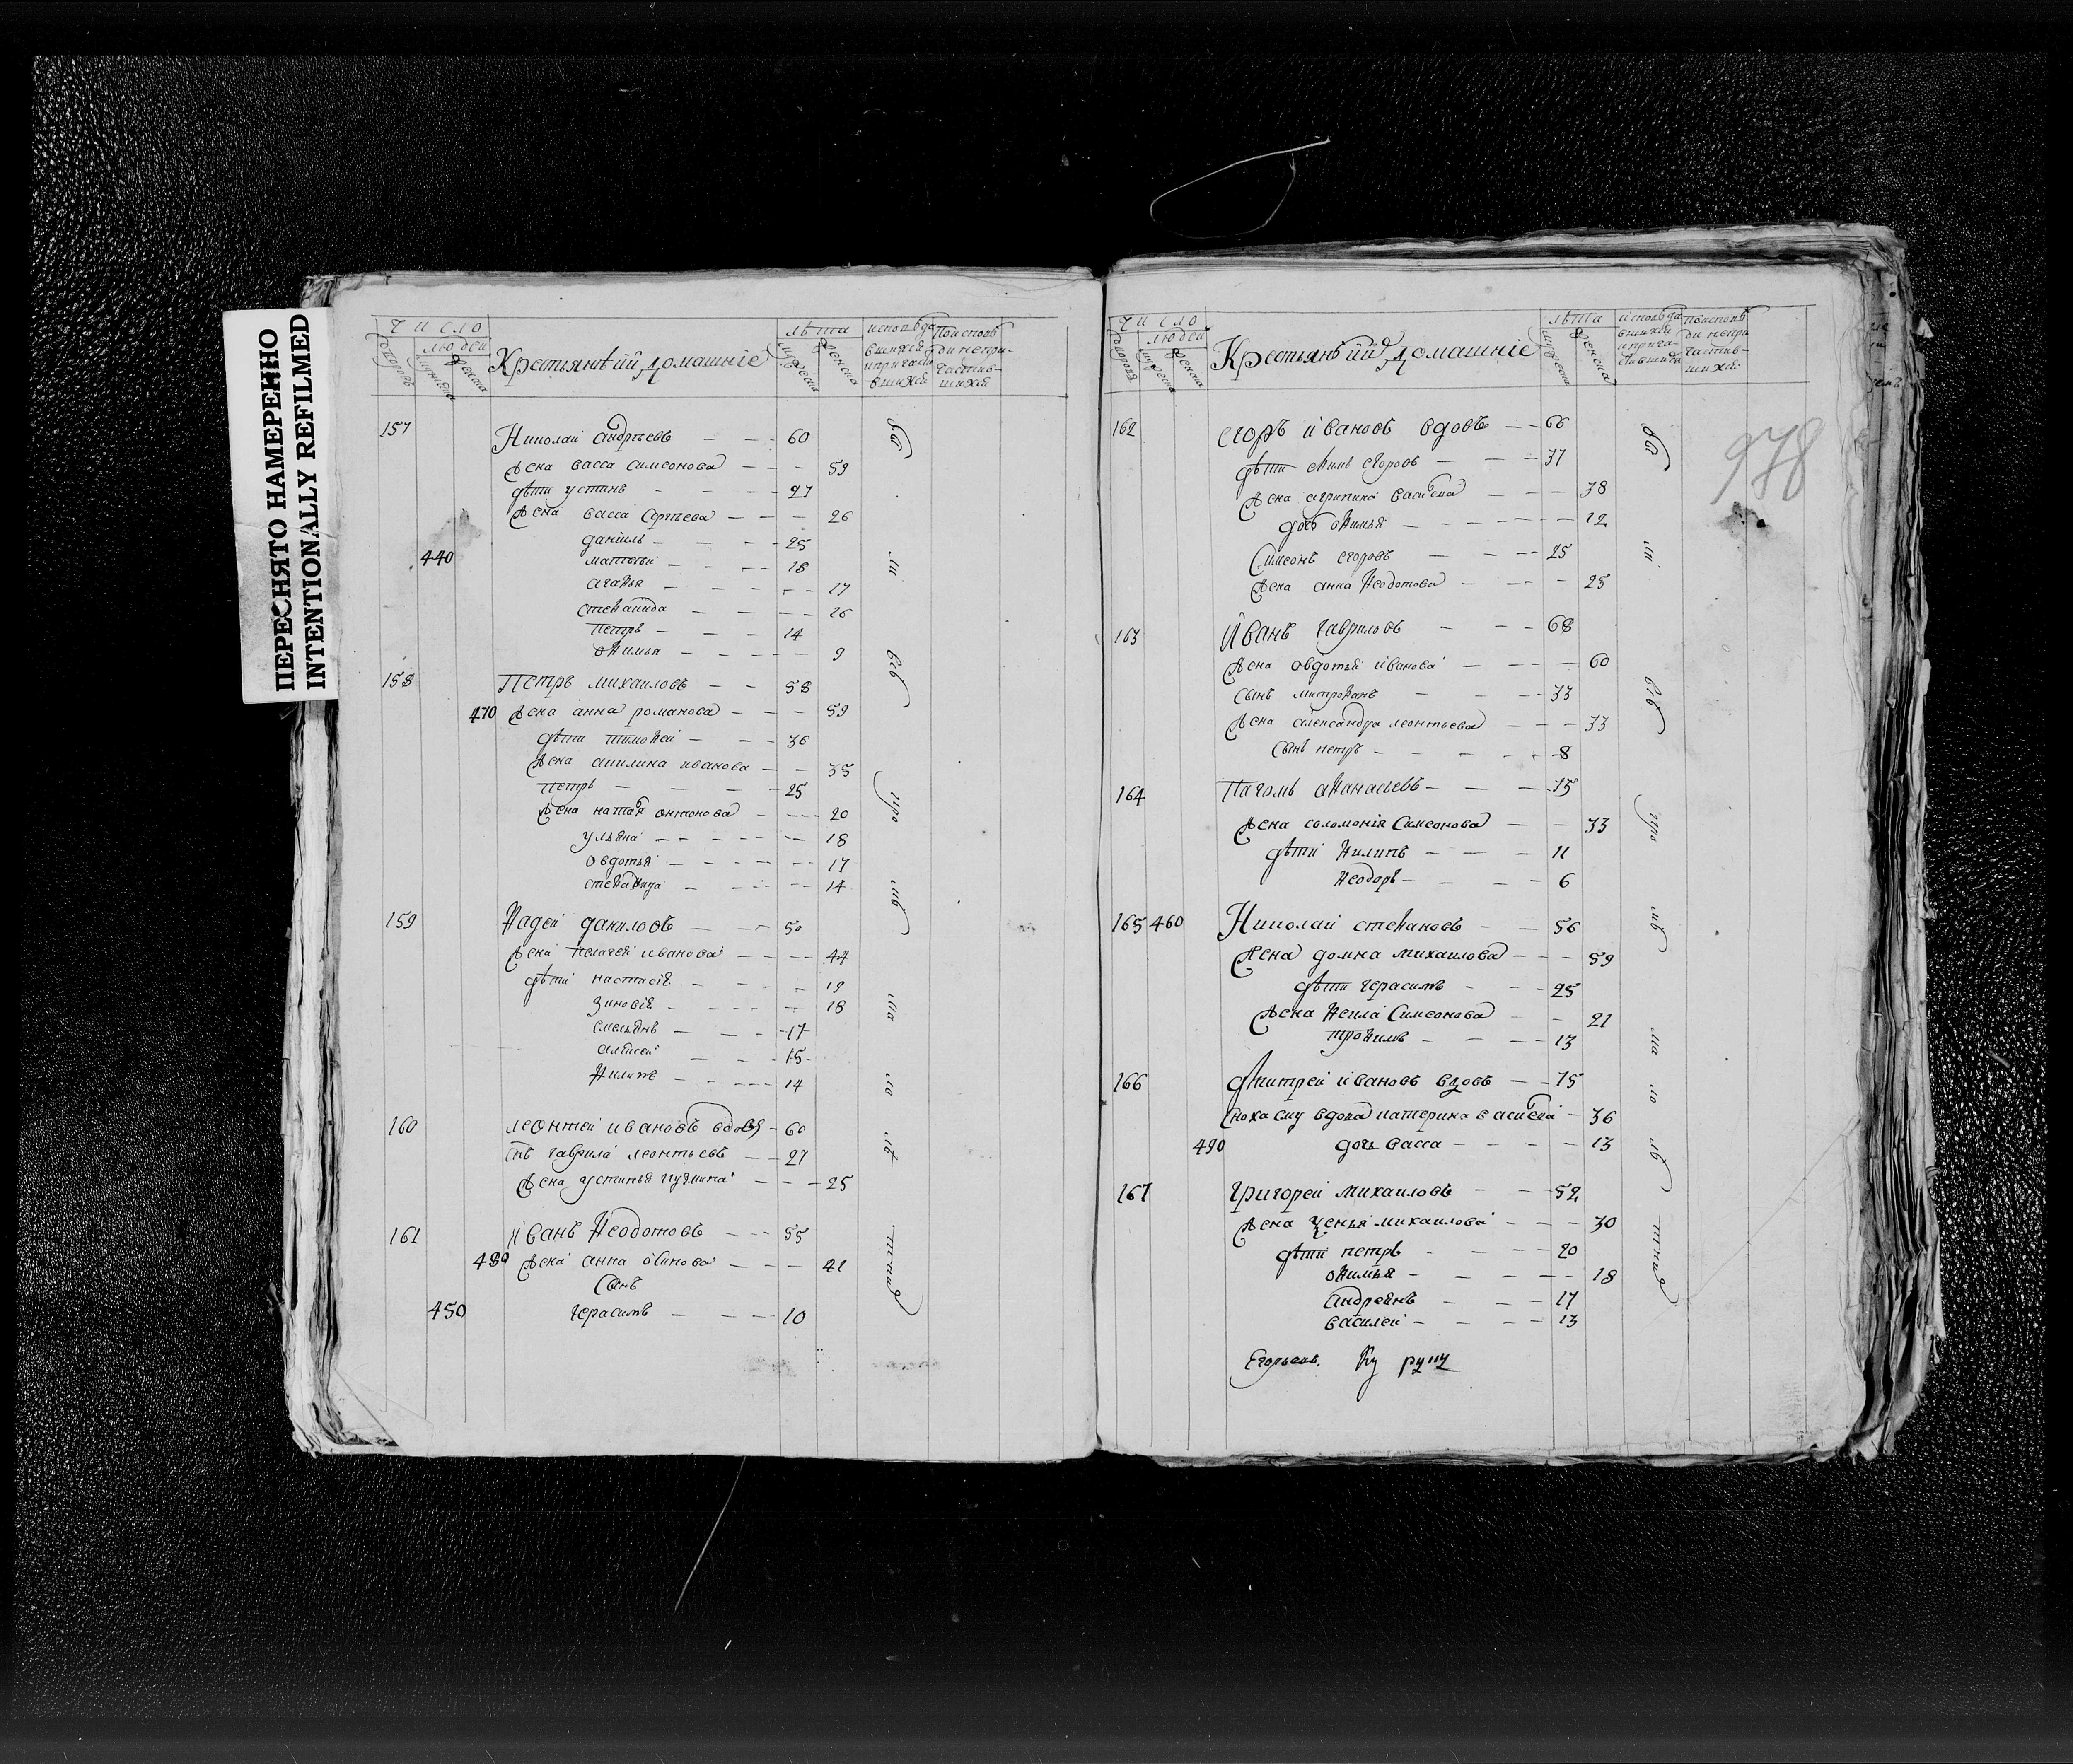 ПЕРЕСНЯТО НАМЕРЕННО
INTENTIONALLY REFILMED
число
людей
Крестьянѣ ий домашніе
лѣта
157 Николай андрѣевъ 60
жена васса симеонова 59
дѣти устинъ 27
жена васса Сергѣева 26
даніилъ 25
440 матвѣй 18
агаѳья 17
стеѳанида 16
петръ 14
оѳимья 9
158 Петръ михаиловъ 58
470 жена анна романова 59
дѣти тимоѳей 36
жена акилина иванова 35
петръ 25
жена наталя антонова 20
ульяна 18
овдотья 17
стеѳанида 14
159 Ѳадей даниловъ 50
жена пелагея иванова 44
дѣти настасія 19
Зиновія 18
емельянъ 17
алѣксей 15
Ѳилипъ 14
160 леонтей ивановъ вдовъ 60
снъ гаврила леонтьевъ 27
жена устинья кузмина 25
161 иванъ Ѳеодотовъ 55
480 жена анна 41
Сынъ
450 герасимъ 10
число
людей
Крестьянѣ ий домашніе
лѣта
978
162 егоръ ивановъ вдовъ 66
дѣти екимъ егоровъ 37
жена агрипина 38
дочь оѳимья 12
Симеонъ егоровъ 25
жена анна Ѳеодотова 25
163 иванъ гавриловъ 68
жена овдотья иванова 60
сынъ митроѳанъ 33
жена александра леонтьева 33
сынъ петръ 8
164 Пагомъ аѳанасьевъ 35
жена соломонія Симеонова 33
дѣти Ѳилипъ 11
Ѳеодоръ 6
165 460 Николай стеѳановъ 56
жена домна михаилова 59
дѣти герасимъ 25
жена Ѳекла Симеонова 21
троѳимъ 13
166 дмитрей ивановъ вдовъ 75
сноха ему вдова катерина 36
490 дочь васса 13
167 Григорей михаиловъ 52
жена ксенья михаилова 30
дѣти петръ 20
оѳимья 18
андреянъ 17
василей 13
руку